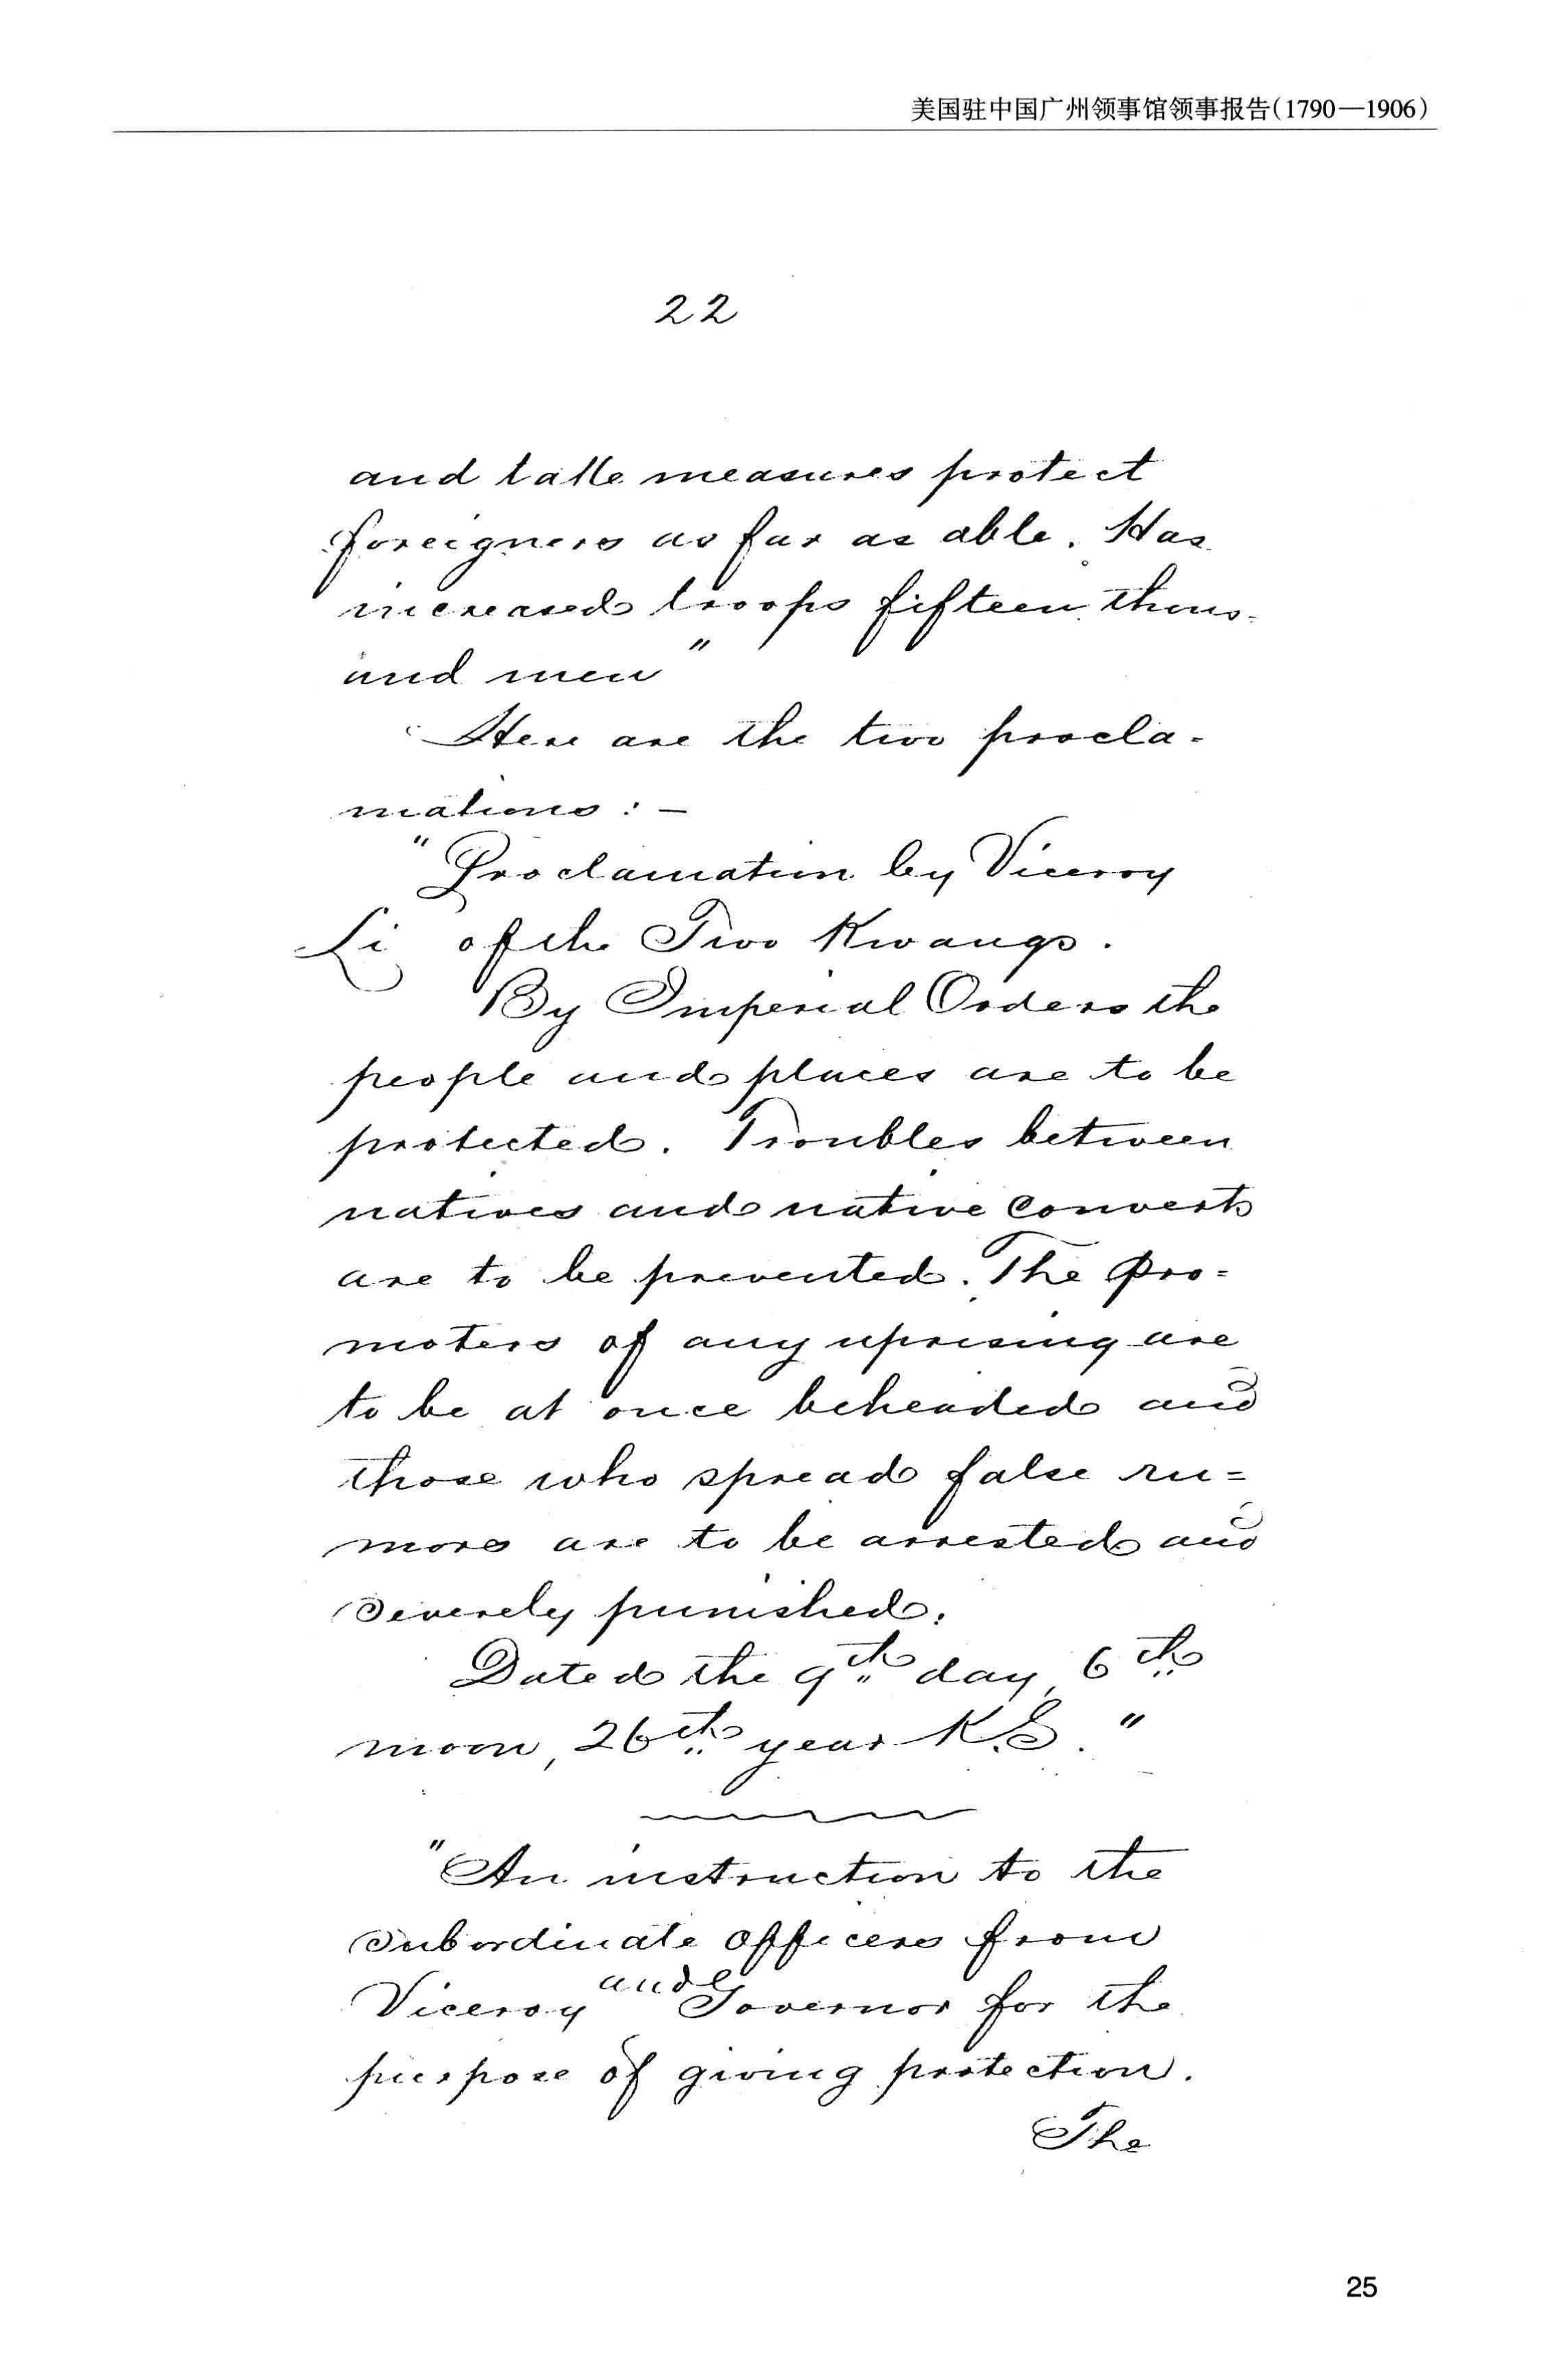 美国驻中国广州领事馆领事报告(1790—1906)
22
and take measures protect
foreigners as far as able. Has
increased troops fifteen thous-
and men"
Here are the two procla-
mations: —
"Proclamation by Viceroy
Li of the Two Kwangs.
By Imperial Orders the
people and places are to be
protected. Troubles between
natives and native converts
are to be prevented. The pro=
moters of any uprising are
to be at once beheaded and
those who spread false ru=
mors are to be arrested and
severely punished.
Dated the 9th day, 6th
moon, 26th year K.S."
"An instruction to the
subordinate officers from
Viceroy and Governor for the
purpose of giving protection.
The
25